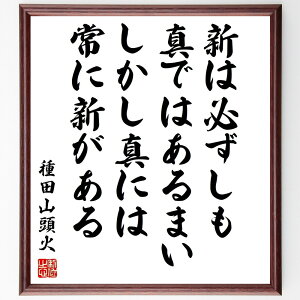 新は必ずしも
真ではあるまい
しかし真には
常に新がある
種田山頭火